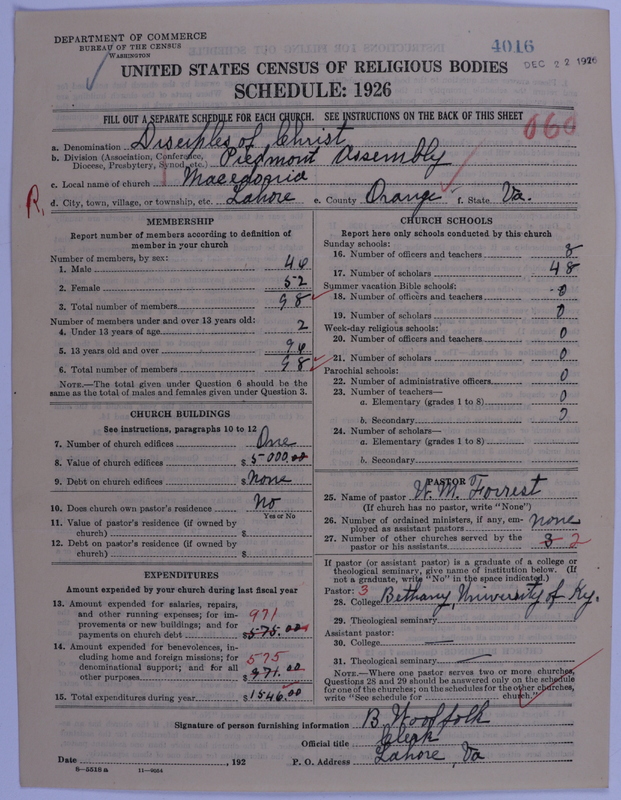 DEPARTMENT OF COMMERCE
BUREAU OF THE CENSUS
WASHINGTON
4016
DEC 22 1926
UNITED STATES CENSUS OF RELIGIOUS BODIES
SCHEDULE: 1926
FILL OUT A SEPARATE SCHEDULE FOR EACH CHURCH. SEE INSTRUCTIONS ON THE BACK OF THIS SHEET
060
a. Denomination Disciples of Christ
b. Division (Association, Conference, Diocese, Presbytery, Synod, etc.) Piedmont Assembly
c. Local name of church Macedonia
R. d. City, town, village, or township, etc. Lahore e. County Orange f. State Va.
MEMBERSHIP
Report number of members according to definition of
member in your church
Number of members, by sex:
1. Male 46
2. Female 52
3. Total number of members 98
Number of members under and over 13 years old:
4. Under 13 years of age 2
5. 13 years old and over 96
6. Total number of members 98
NOTE.—The total given under Question 6 should be the
same as the total of males and females given under Question 3.
CHURCH BUILDINGS
See instructions, paragraphs 10 to 12
7. Number of church edifices One
8. Value of church edifices $5000.00
9. Debt on church edifices $None
10. Does church own pastor's residence No
Yes or No
11. Value of pastor's residence (if owned by
church) $
12. Debt on pastor's residence (if owned by
church) $
EXPENDITURES
Amount expended by your church during last fiscal year
13. Amount expended for salaries, repairs,
and other running expenses; for im- 971
provements or new buildings; and for
payments on church debt $575.00
14. Amount expended for benevolences, in-
cluding home and foreign missions; for 575
denominational support; and for all
other purposes $971.00
15. Total expenditures during year $1546.00
CHURCH SCHOOLS
Report here only schools conducted by this church
Sunday schools:
16. Number of officers and teachers 8
17. Number of scholars 48
Summer vacation Bible schools:
18. Number of officers and teachers 0
19. Number of scholars 0
Week-day religious schools:
20. Number of officers and teachers 0
21. Number of scholars 0
Parochial schools:
22. Number of administrative officers 0
23. Number of teachers—
a. Elementary (grades 1 to 8) 0
b. Secondary 0
24. Number of scholars—
a. Elementary (grades 1 to 8)
b. Secondary
PASTOR
25. Name of pastor W. M. Forrest
(If church has no pastor, write "None")
26. Number of ordained ministers, if any, em-
ployed as assistant pastors none
27. Number of other churches served by the
pastor or his assistants 3 2
If pastor (or assistant pastor) is a graduate of a college or
theological seminary, give name of institution below. (If
not a graduate, write "No" in the space indicated.)
Pastor: 3
28. College Bethany, University of Ky.
29. Theological seminary
Assistant pastor:
30. College —
31. Theological seminary —
NOTE.—Where one pastor serves two or more churches,
Questions 28 and 29 should be answered only on the schedule
for one of the churches; on the schedules for the other churches,
write "See schedule for church."
Signature of person furnishing information B Woolfolk
Official title Clerk
Date , 192 P. O. Address Lahore, Va
8—5518 a 11—8654